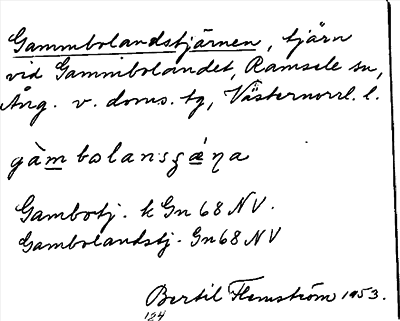 Gammbolandstjärnen, tjärn
vid Gammbolandet, Ramsele sn,
Ång. v. doms. tg, Västernorrl. l.
gàmbolansʒǽɳa
Gambotj. k Gn 68 NV.
Gambolandstj. Gn 68 NV
Bertil Flemström 1953.
124